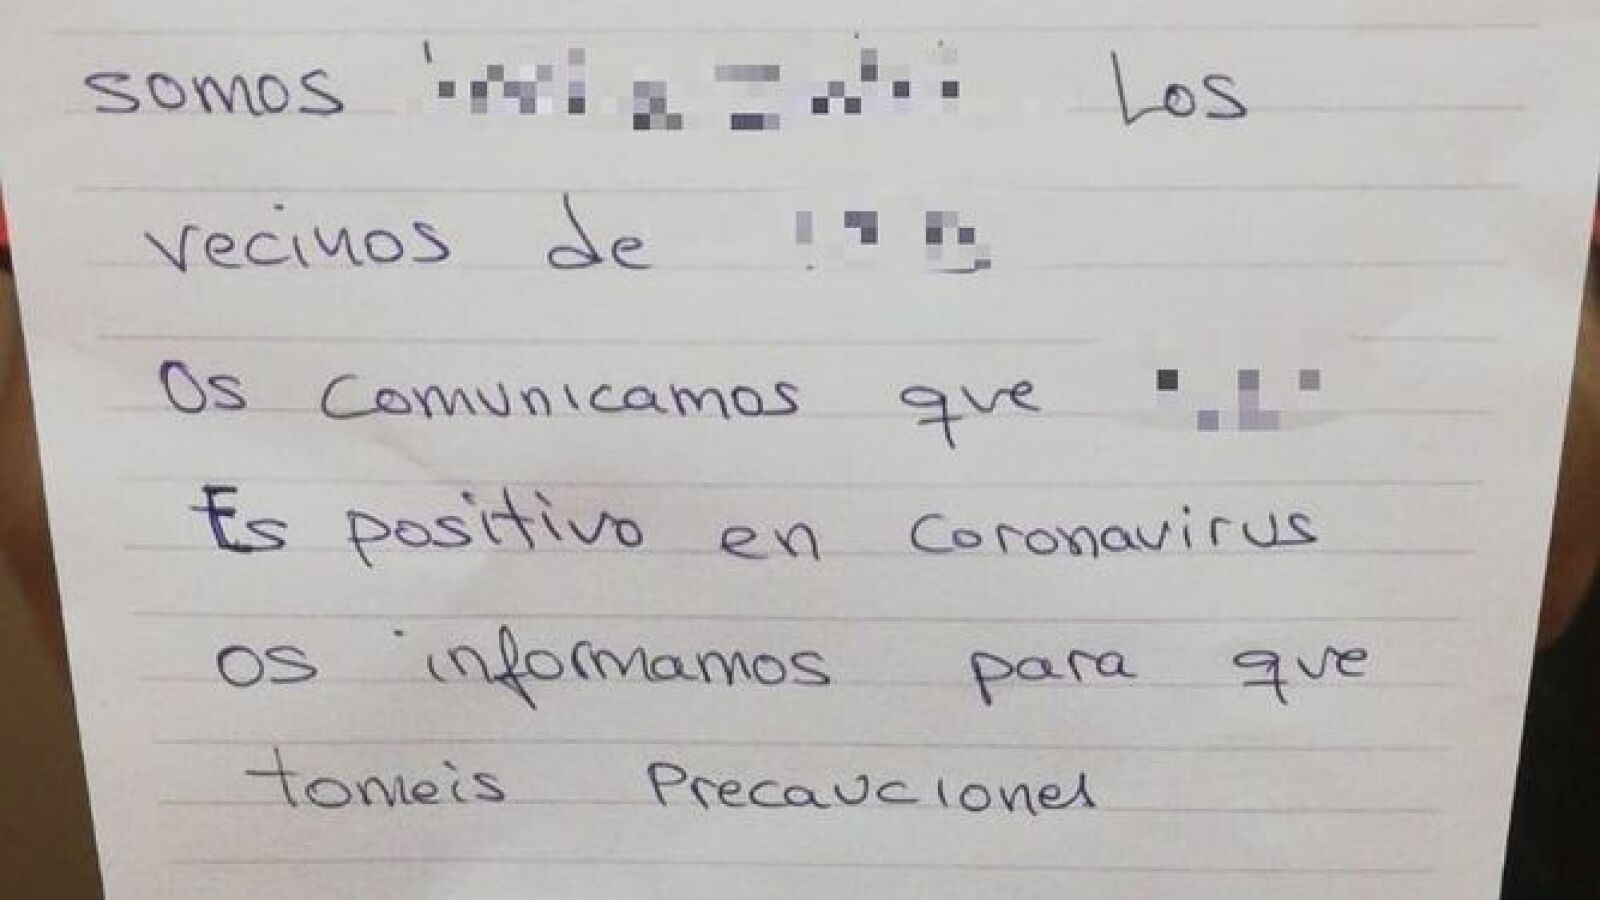 somos Los
vecinos de
Os comunicamos que
Es positivo en coronavirus
os informamos para que
tomeis Precauciones